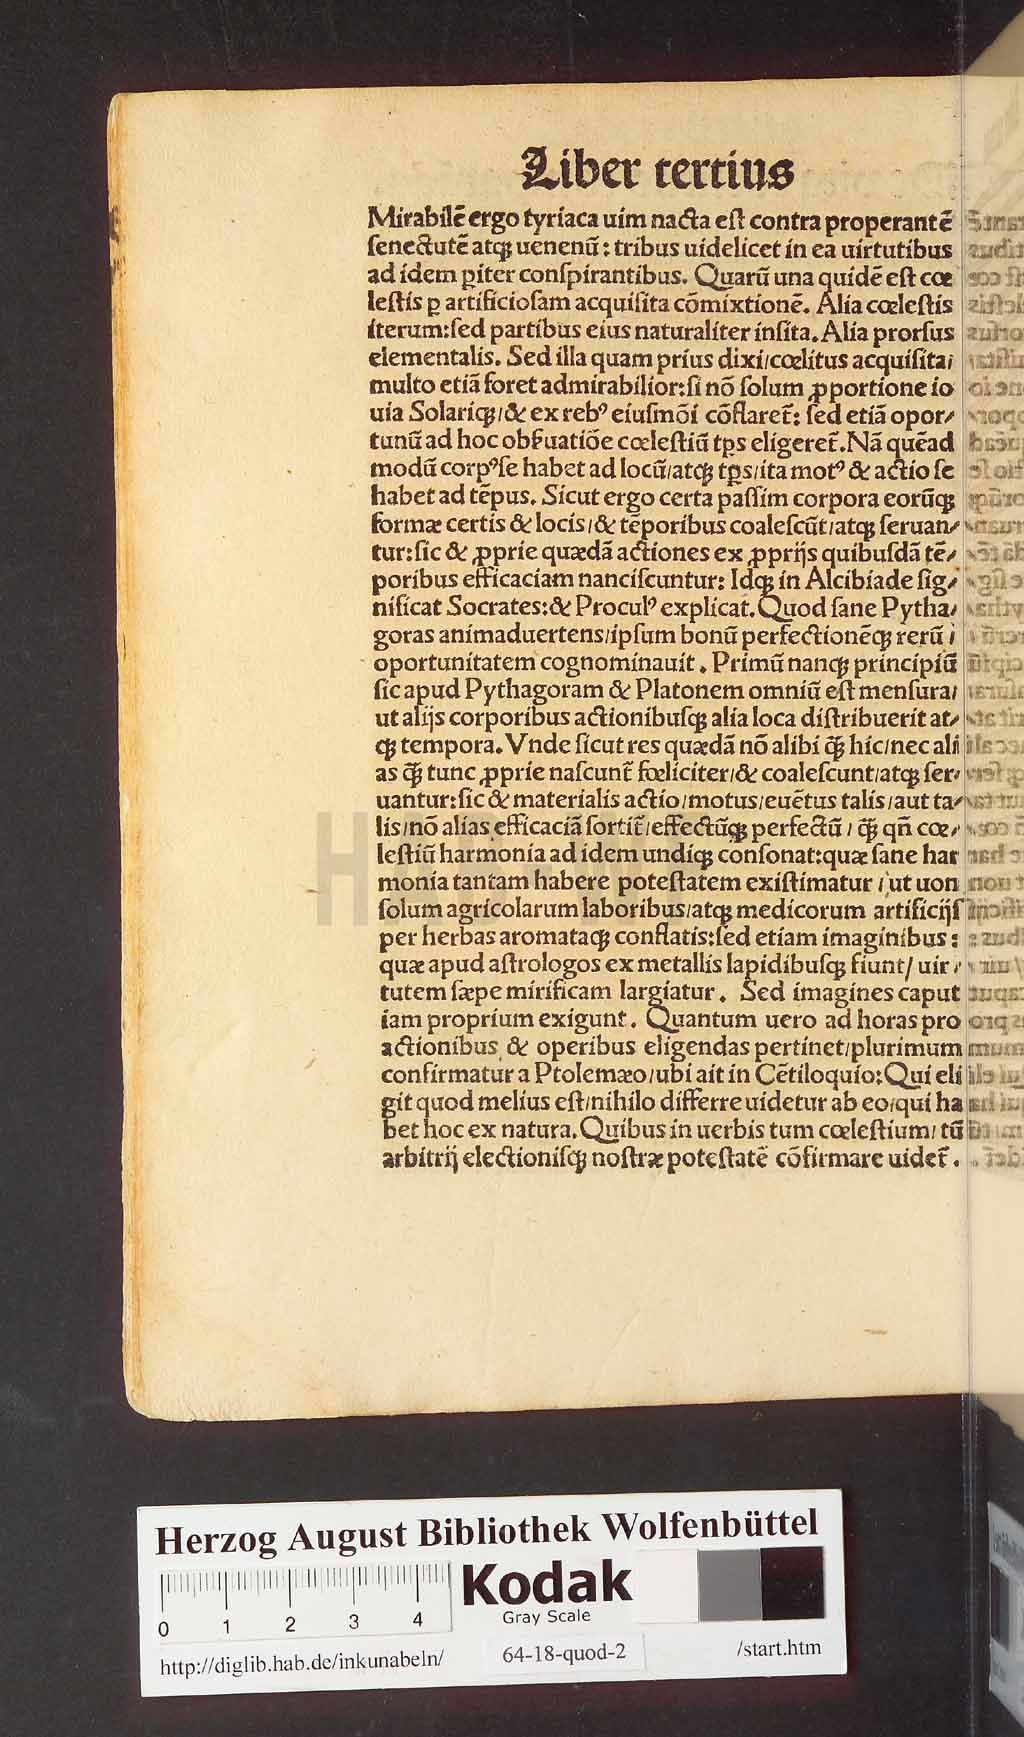 Liber tertius
Mirabilē ergo tyriaca uim nacta eſt contra properantē
ſenectutē atqꝫ uenenū: tribus uidelicet in ea uirtutibus
ad idem ꝑiter conſpirantibus. Quarū una quidē eſt cœ
leſtis ꝑ artificioſam acquiſita cōmixtionē. Alia cœleſtis
iterum:ſed partibus eius naturaliter inſita. Alia prorſus
elementalis. Sed illa quam prius dixi/cœlitus acquiſita/
multo etiā foret admirabilior:ſi nō ſolum ꝓportione io
uia Solariqꝫ/& ex rebꝰ eiuſmōi cōflaret̄: ſed etiā opor/
tunū ad hoc obſ̄uatiōe cœleſtiū tꝑs eligeret̄. Nā quēad
modū corpꝰ ſe habet ad locū/atqꝫ tꝑs/ita motꝰ & actio ſe
habet ad tēpus. Sicut ergo certa paſſim corpora eorūqꝫ
formæ certis & locis/& tēporibus coaleſcūt/atqꝫ ſeruan/
tur:ſic & ꝓprie quædā actiones ex ꝓprijs quibuſdā tē/
poribus efficaciam nanciſcuntur: Idqꝫ in Alcibiade ſig/
nificat Socrates:& Proculꝰ explicat. Quod ſane Pytha/
goras animaduertens/ipſum bonū perfectionēqꝫ rerū /
oportunitatem cognominauit. Primū nanqꝫ principiū
ſic apud Pythagoram & Platonem omniū eſt menſura/
ut alijs corporibus actionibuſqꝫ alia loca diſtribuerit at/
qꝫ tempora. Vnde ſicut res quædā nō alibi q̄ꝫ hic/nec ali
as q̄ꝫ tunc ꝓprie naſcunt̄ fœliciter/& coaleſcunt/atqꝫ ſer/
uantur:ſic & materialis actio/motus/euētus talis/aut ta/
lis/nō alias efficaciā ſortit̄/effectūqꝫ perfectū / q̄ꝫ qn̄ cœ/
leſtiū harmonia ad idem undiqꝫ conſonat:quæ ſane har
monia tantam habere poteſtatem exiſtimatur / ut uon
ſolum agricolarum laboribus/atqꝫ medicorum artificijſ
per herbas aromataqꝫ conflatis:ſed etiam imaginibus :
quæ apud aſtrologos ex metallis lapidibuſqꝫ fiunt/ uir/
tutem ſæpe mirificam largiatur. Sed imagines caput
iam proprium exigunt. Quantum uero ad horas pro
actionibus & operibus eligendas pertinet/plurimum
confirmatur a Ptolemæo/ubi ait in Cētiloquio: Qui eli
git quod melius eſt/nihilo differre uidetur ab eo/qui ha
bet hoc ex natura. Quibus in uerbis tum cœleſtium/ tū
arbitrij electioniſqꝫ noſtræ poteſtatē cōfirmare uidet̄.
Herzog August Bibliothek Wolfenbüttel
Kodak
Gray Scale
0 1 2 3 4
http://diglib.hab.de/inkunabeln/ 64-18-quod-2 /start.htm